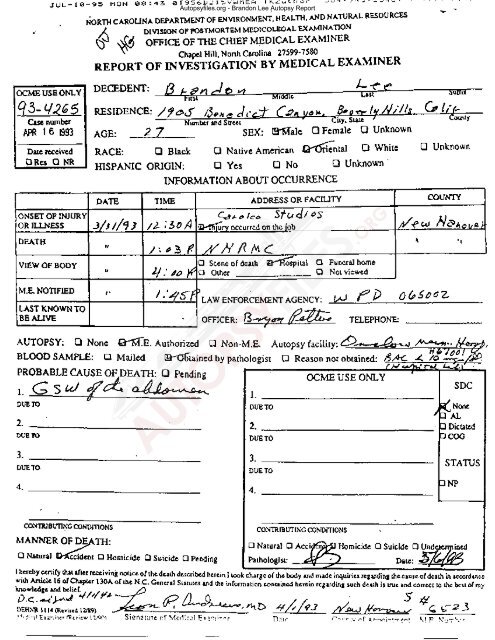 JUL-10-95 MON 08:43
Autopsyfiles.org - Brandon Lee Autopsy Report
NORTH CAROLINA DEPARTMENT OF ENVIRONMENT, HEALTH, AND NATURAL RESOURCES
DIVISION OF POSTMORTEM MEDICOLEGAL EXAMINATION
OFFICE OF THE CHIEF MEDICAL EXAMINER
Chapel Hill, North Carolina 27599-7580
REPORT OF INVESTIGATION BY MEDICAL EXAMINER
OCME USE ONLY
93-4265
Case number
APR 16 1993
Date received
Res NR
DECEDENT: Brandon Lee
First Middle Last Suffix
RESIDENCE: 1905 Benedict Canyon, Beverly Hills, Calif
Number and Street City, State County
AGE: 27 SEX: Male Female Unknown
RACE: Black Native American Oriental White Unknown
HISPANIC ORIGIN: Yes No Unknown
INFORMATION ABOUT OCCURRENCE
DATE TIME ADDRESS OR FACILITY COUNTY
ONSET OF INJURY OR ILLNESS 3/31/93 12:30A Carolco Studios Injury occurred on the job New Hanover
DEATH " 1:03P NHRMC " "
VIEW OF BODY " 4:00P Scene of death Hospital Funeral home
Other Not viewed
M.E. NOTIFIED " 1:45P LAW ENFORCEMENT AGENCY: WPD 065002
LAST KNOWN TO BE ALIVE OFFICER: Bryon Pelters TELEPHONE:
AUTOPSY: None M.E. Authorized Non-M.E. Autopsy facility: Onslow Mem. Hosp.
BLOOD SAMPLE: Mailed Obtained by pathologist Reason not obtained: BAC
PROBABLE CAUSE OF DEATH: Pending
1. GSW of the abdomen
DUE TO
2.
DUE TO
3.
DUE TO
4.
CONTRIBUTING CONDITIONS
OCME USE ONLY
1.
DUE TO
2.
DUE TO
3.
DUE TO
4.
CONTRIBUTING CONDITIONS
SDC
None
AL
Dictated
COG
STATUS
NP
MANNER OF DEATH:
Natural Accident Homicide Suicide Pending
Natural Accident Homicide Suicide Undetermined
Pathologist: Date:
I hereby certify that after receiving notice of the death described herein I took charge of the body and made inquiries regarding the cause of death in accordance
with Article 16 of Chapter 130A of the N.C. General Statutes and the information contained herein regarding such death is true and correct to the best of my
knowledge and belief.
DEHNR 1114 (Revised 12/89)
Leon P. Andrews, MD 4/1/93 New Hanover 6523
Signature of Medical Examiner Date County of Appointment M.E. Number